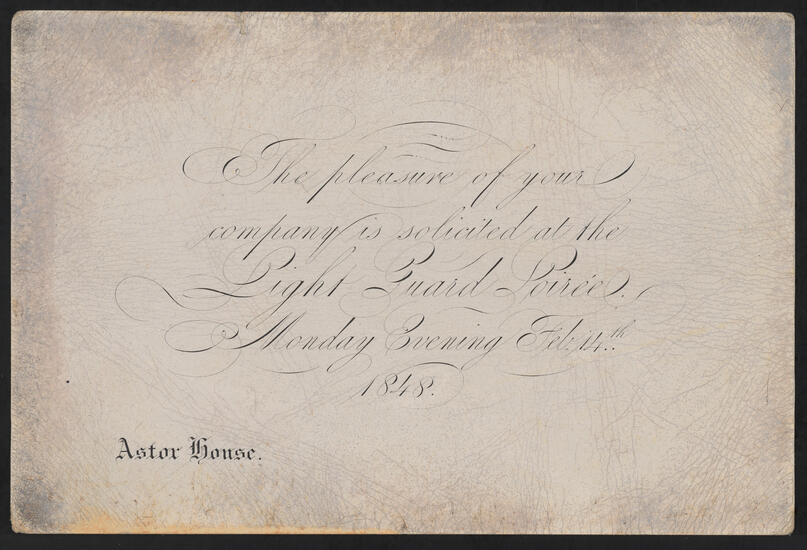 The pleasure of your
company is solicited at the
Light Guard Soirée.
Monday Evening Feb. 14.th
1848.
Astor House.